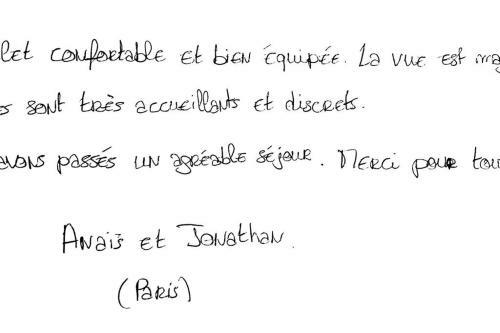 let confortable et bien équipée. La vue est ma
es sont très accueillants et discrets.
avons passés un agréable séjour. Merci pour tou
Anaïs et Jonathan.
(Paris)